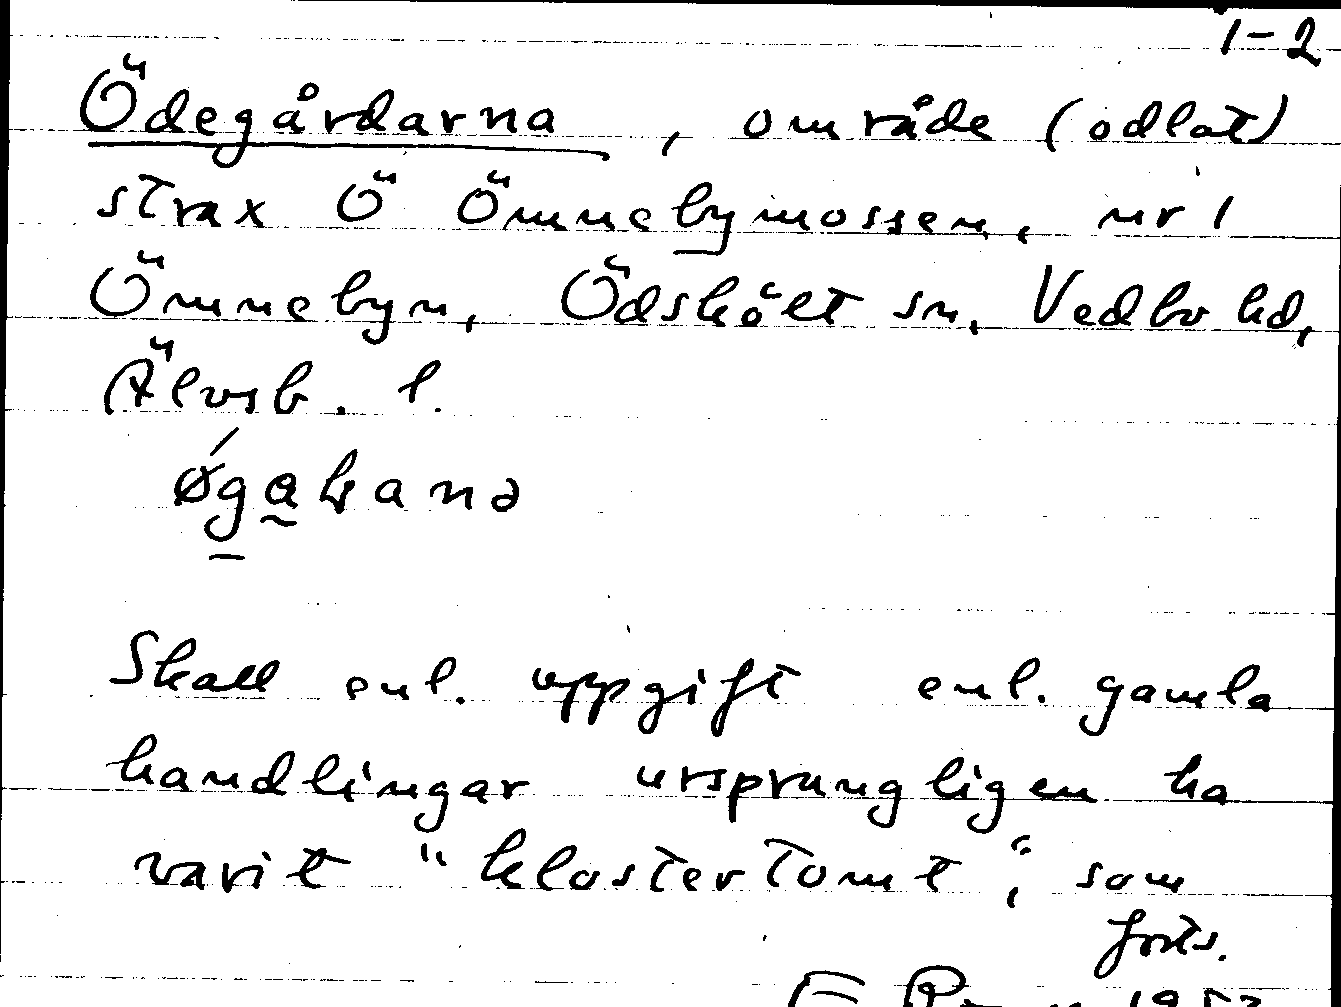 1-2
Ödegårdarna, område (odlat)
strax Ö Ömnebymossen, nr 1
Ömnebyn, Ödskölt sn, Vedbo hd,
Älvsb. l.
Skall enl. uppgift enl. gamla
handlingar ursprungligen ha
varit "klostertomt", som
forts.